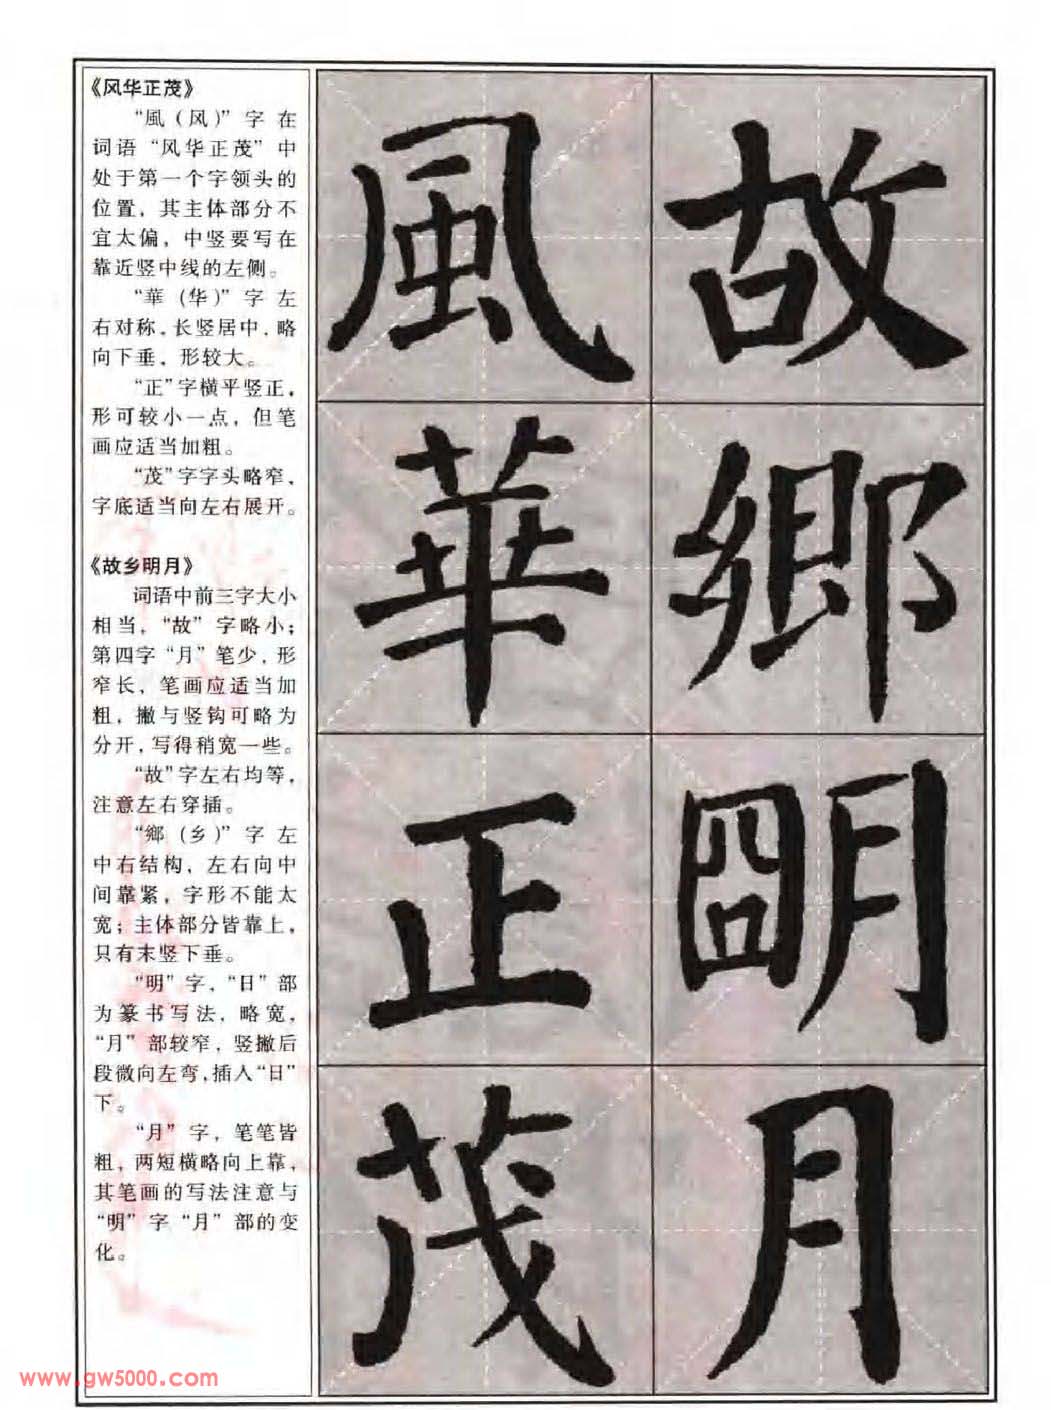 《风华正茂》
“風（风）”字在
词语“风华正茂”中
处于第一个字领头的
位置，其主体部分不
宜太偏，中竖要写在
靠近竖中线的左侧。
“華（华）”字左
右对称，长竖居中，略
向下垂，形较大。
“正”字横平竖正，
形可较小一点，但笔
画应适当加粗。
“茂”字字头略窄，
字底适当向左右展开。
《故乡明月》
词语中前三字大小
相当，“故”字略小；
第四字“月”笔少，形
窄长，笔画应适当加
粗，撇与竖钩可略为
分开，写得稍宽一些。
“故”字左右均等，
注意左右穿插。
“鄉（乡）”字左
中右结构，左右向中
间靠紧，字形不能太
宽；主体部分皆靠上，
只有末竖下垂。
“明”字，“日”部
为篆书写法，略宽，
“月”部较窄，竖撇后
段微向左弯，插入“日”
下。
“月”字，笔笔皆
粗，两短横略向上靠，
其笔画的写法注意与
“明”字“月”部的变
化。
故鄉明月
風華正茂
www.gw5000.com